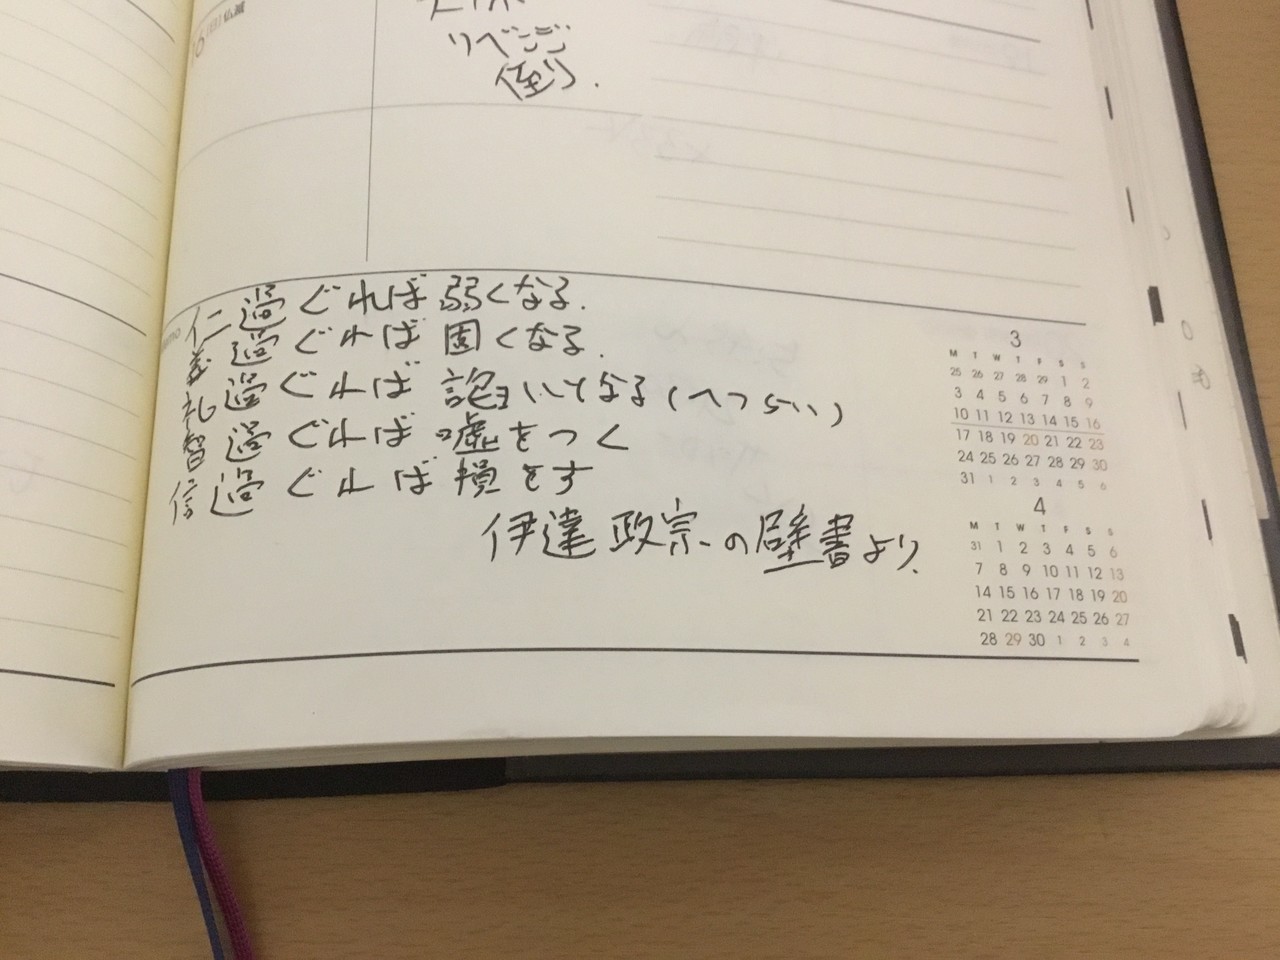 16 (日) 仏滅
リベンジ
倒り.
memo
仁過ぎれば弱くなる.
義過ぐれば固くなる.
礼過ぐれば諂いとなる(へつらい)
智過ぐれば嘘をつく
信過ぐれば損をす
伊達政宗の壁書より.
3
M T W T F S S
25 26 27 28 29 1 2
3 4 5 6 7 8 9
10 11 12 13 14 15 16
17 18 19 20 21 22 23
24 25 26 27 28 29 30
31 1 2 3 4 5 6
4
M T W T F S S
31 1 2 3 4 5 6
7 8 9 10 11 12 13
14 15 16 17 18 19 20
21 22 23 24 25 26 27
28 29 30 1 2 3 4